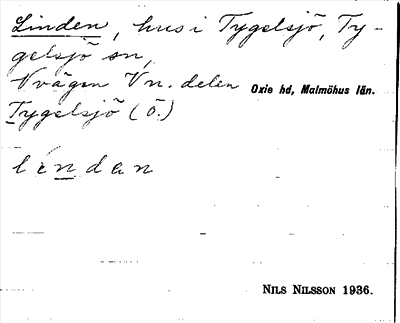 Linden, hus i Tygelsjö, Ty-
gelsjö sn,
Vvägen Vn. delen Oxie hd, Malmöhus län.
Tygelsjö (ö.)
lendan
NILS NILSSON 1936.